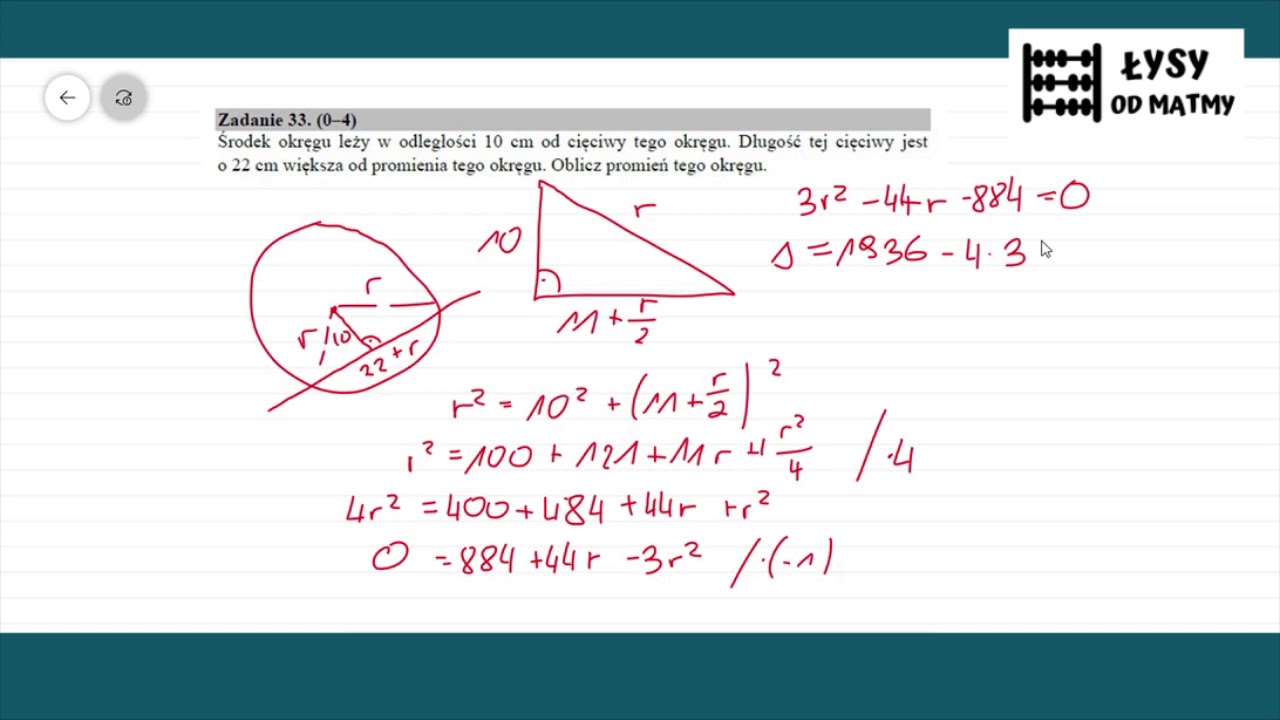 ŁYSY
OD MATMY
Zadanie 33. (0–4)
Środek okręgu leży w odległości 10 cm od cięciwy tego okręgu. Długość tej cięciwy jest
o 22 cm większa od promienia tego okręgu. Oblicz promień tego okręgu.
r
r
10
22 + r
10
r
11 + r/2
r² = 10² + (11 + r/2)²
r² = 100 + 121 + 11r + r²/4 / ·4
4r² = 400 + 484 + 44r + r²
0 = 884 + 44r - 3r² / ·(-1)
3r² - 44r - 884 = 0
Δ = 1936 - 4 · 3